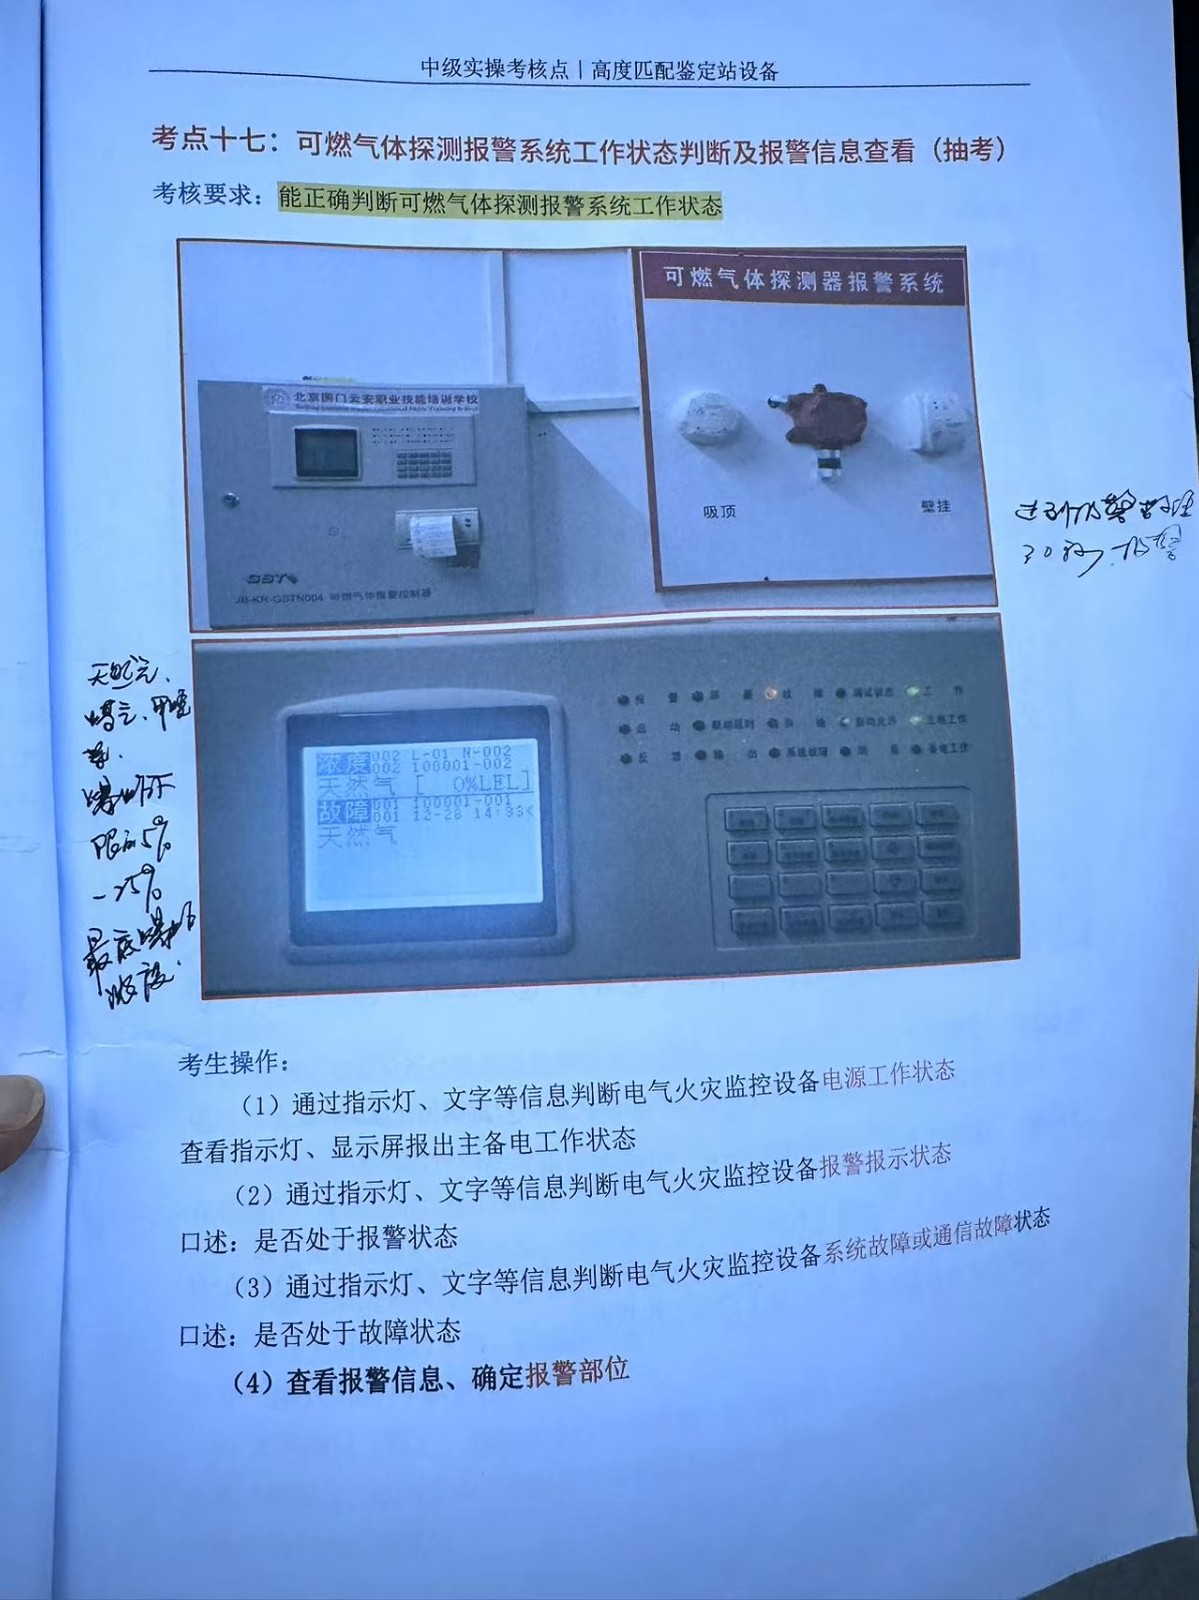 中级实操考核点 | 高度匹配鉴定站设备
考点十七：可燃气体探测报警系统工作状态判断及报警信息查看（抽考）
考核要求：能正确判断可燃气体探测报警系统工作状态
可燃气体探测器报警系统
北京国门云安职业技能培训学校
吸顶
壁挂
JB-KR-GSTN004 可燃气体报警控制器
达到报警
30秒，报警
天然气、
爆炸下
限的5%
-25%
最底爆炸
浓度.
浓度 002 L-01 N-002
002 100001-002
天然气 [ 0%LEL]
故障 001 100001-001
001 12-28 14:33<
天然气
报 警
故 障
调试状态
工 作
启 动
自动允许
主电工作
反 馈
输 出
系统故障
备电工作
考生操作：
（1）通过指示灯、文字等信息判断电气火灾监控设备电源工作状态
查看指示灯、显示屏报出主备电工作状态
（2）通过指示灯、文字等信息判断电气火灾监控设备报警报示状态
口述：是否处于报警状态
（3）通过指示灯、文字等信息判断电气火灾监控设备系统故障或通信故障状态
口述：是否处于故障状态
（4）查看报警信息、确定报警部位